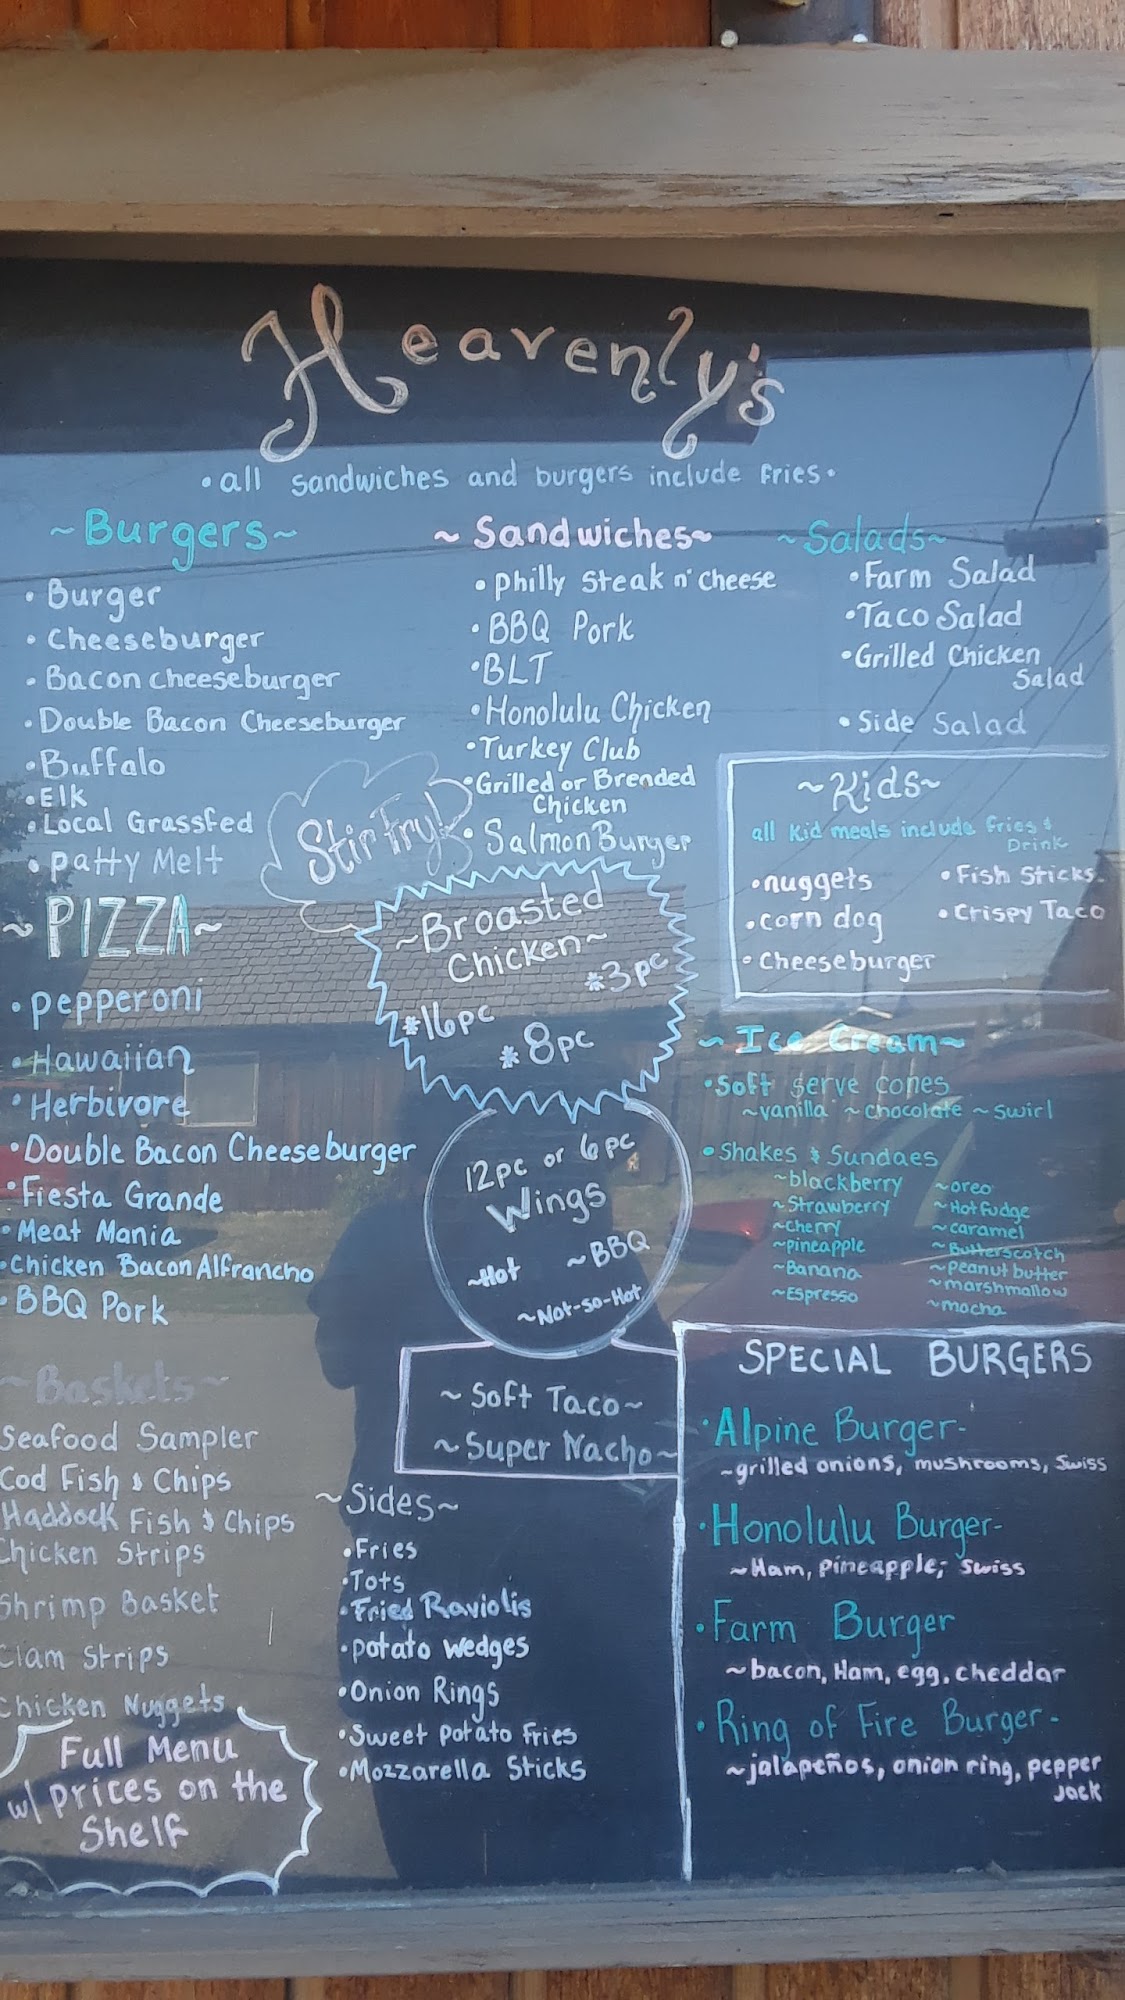 Heavenly's
• all sandwiches and burgers include fries •
~Burgers~
• Burger
• Cheeseburger
• Bacon cheeseburger
• Double Bacon Cheeseburger
• Buffalo
• Elk
• Local Grassfed
• patty Melt
~ Sandwiches~
• philly steak n' cheese
• BBQ Pork
• BLT
• Honolulu Chicken
• Turkey Club
• Grilled or Brended
Chicken
• Salmon Burger
~Salads~
• Farm Salad
• Taco Salad
• Grilled Chicken
Salad
• Side Salad
~Kids~
all kid meals include fries &
Drink
• nuggets
• corn dog
• cheeseburger
• Fish Sticks
• Crispy Taco
Stir Fry!
~PIZZA~
• pepperoni
• Hawaiian
• Herbivore
• Double Bacon Cheeseburger
• Fiesta Grande
• Meat Mania
• Chicken Bacon Alfrancho
• BBQ Pork
~Broasted
Chicken~
*3pc
*16pc
*8pc
12pc or 6pc
Wings
~Hot
~BBQ
~Not-so-Hot
~ Ice Cream~
• Soft serve cones
~vanilla ~chocolate ~swirl
• Shakes & Sundaes
~blackberry
~Strawberry
~cherry
~pineapple
~Banana
~Espresso
~oreo
~Hot Fudge
~caramel
~Butterscotch
~peanut butter
~marshmallow
~mocha
~Baskets~
Seafood Sampler
Cod Fish & Chips
Haddock Fish & Chips
Chicken Strips
Shrimp Basket
Clam Strips
Chicken Nuggets
Full Menu
w/ prices on the
Shelf
~ Soft Taco~
~Super Nacho~
~Sides~
• Fries
• Tots
• Fried Raviolis
• potato wedges
• Onion Rings
• Sweet potato fries
• Mozzarella Sticks
SPECIAL BURGERS
• Alpine Burger-
~grilled onions, mushrooms, Swiss
• Honolulu Burger-
~Ham, pineapple, Swiss
• Farm Burger
~bacon, Ham, egg, cheddar
• Ring of Fire Burger-
~jalapeños, onion ring, pepper
jack